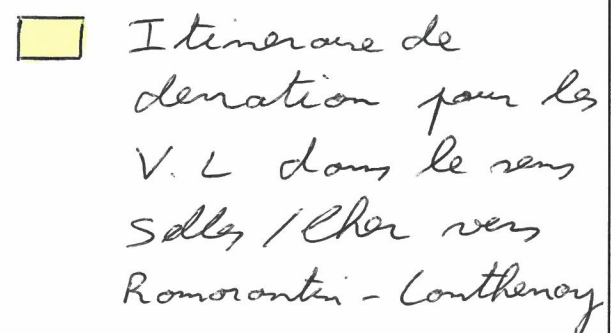 Itineraire de
deviation pour les
V.L dans le sens
Selles / Cher vers
Romorantin - Lanthenay